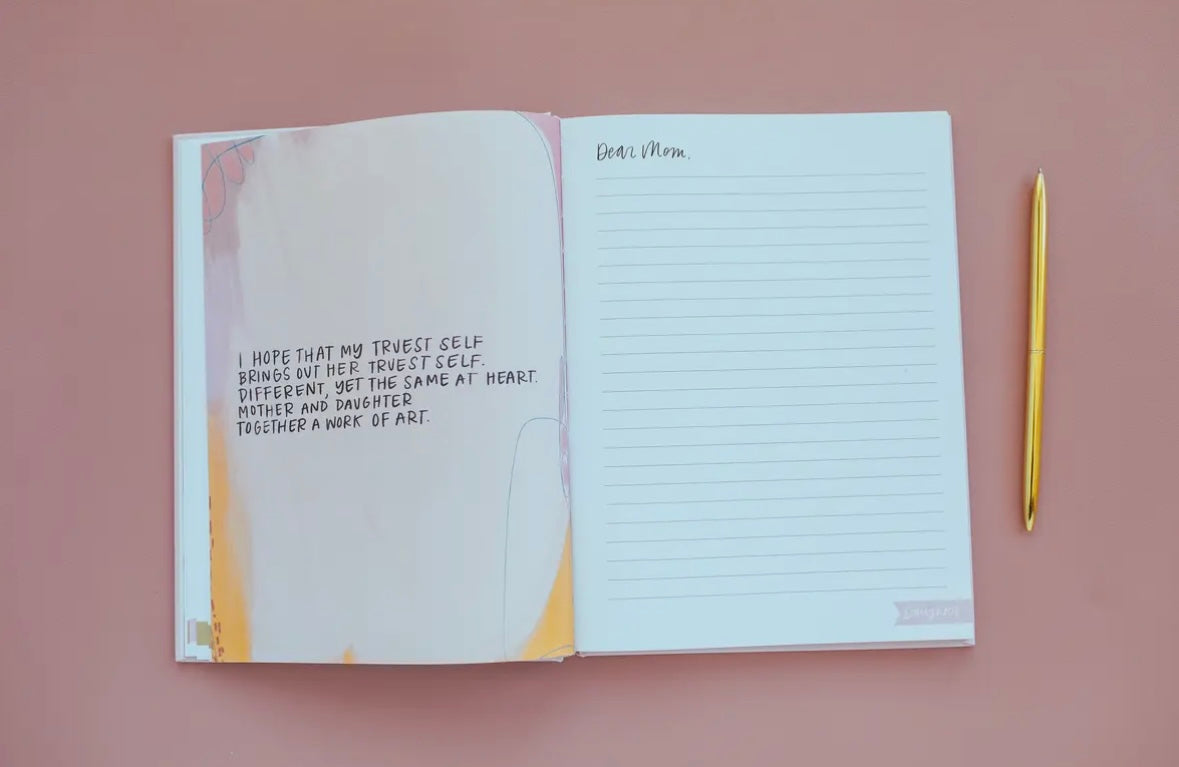 I HOPE THAT MY TRUEST SELF
BRINGS OUT HER TRUEST SELF.
DIFFERENT, YET THE SAME AT HEART.
MOTHER AND DAUGHTER
TOGETHER A WORK OF ART.
Dear Mom,
Daughter